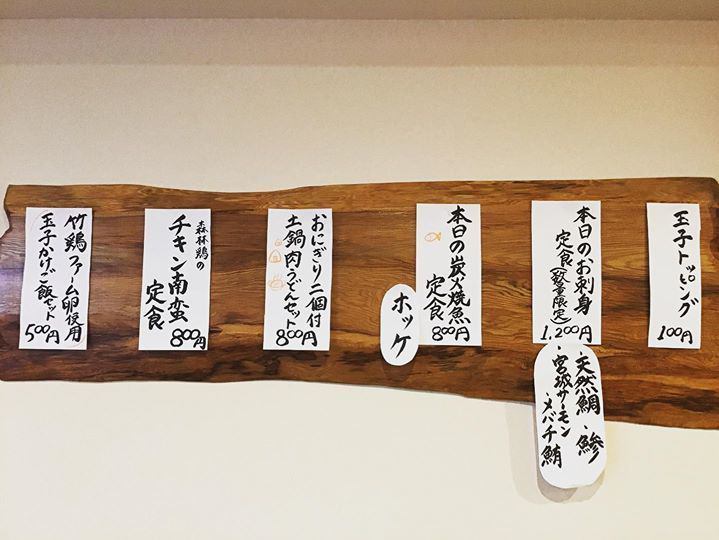 玉子トッピング
100円
本日のお刺身
定食(数量限定)
1,200円
・天然鯛・鯵
・宮城サーモン
・メバチ鮪
本日の炭火焼魚
定食
800円
ホッケ
おにぎり二個付
土鍋肉うどんセット
800円
森林鶏の
チキン南蛮
定食
800円
竹鶏ファーム卵使用
玉子かけご飯セット
500円